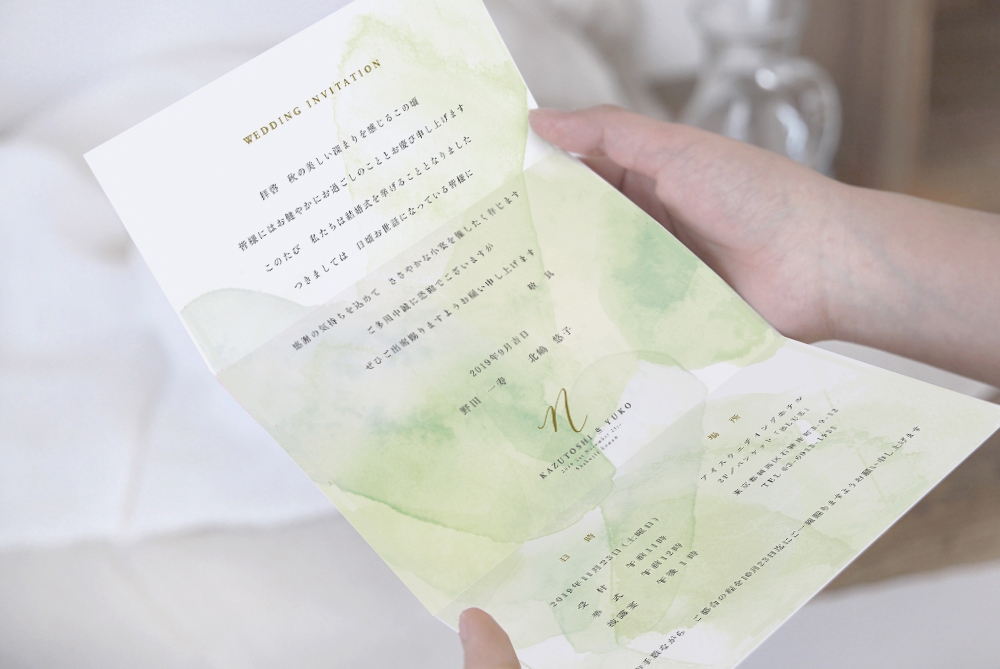 WEDDING INVITATION
拝啓 秋の美しい深まりを感じるこの頃
皆様にはお健やかにお過ごしのこととお慶び申し上げます
このたび 私たちは結婚式を挙げることとなりました
つきましては 日頃お世話になっている皆様に
感謝の気持ちを込めて ささやかな小宴を催したく存じます
ご多用中誠に恐縮でございますが
ぜひご出席賜りますようお願い申し上げます
敬具
2019年9月吉日
野田 一寿 北嶋 悠子
n
KAZUTOSHI & YUKO
日時
2019年11月23日(土曜日)
受付 午前11時
挙式 午前12時
披露宴 午後1時
場所
アイスウエディングホテル
2F/バンケット
TEL
お手数ながら ご都合の程を10月23日迄にご一報賜りますようお願い申し上げます